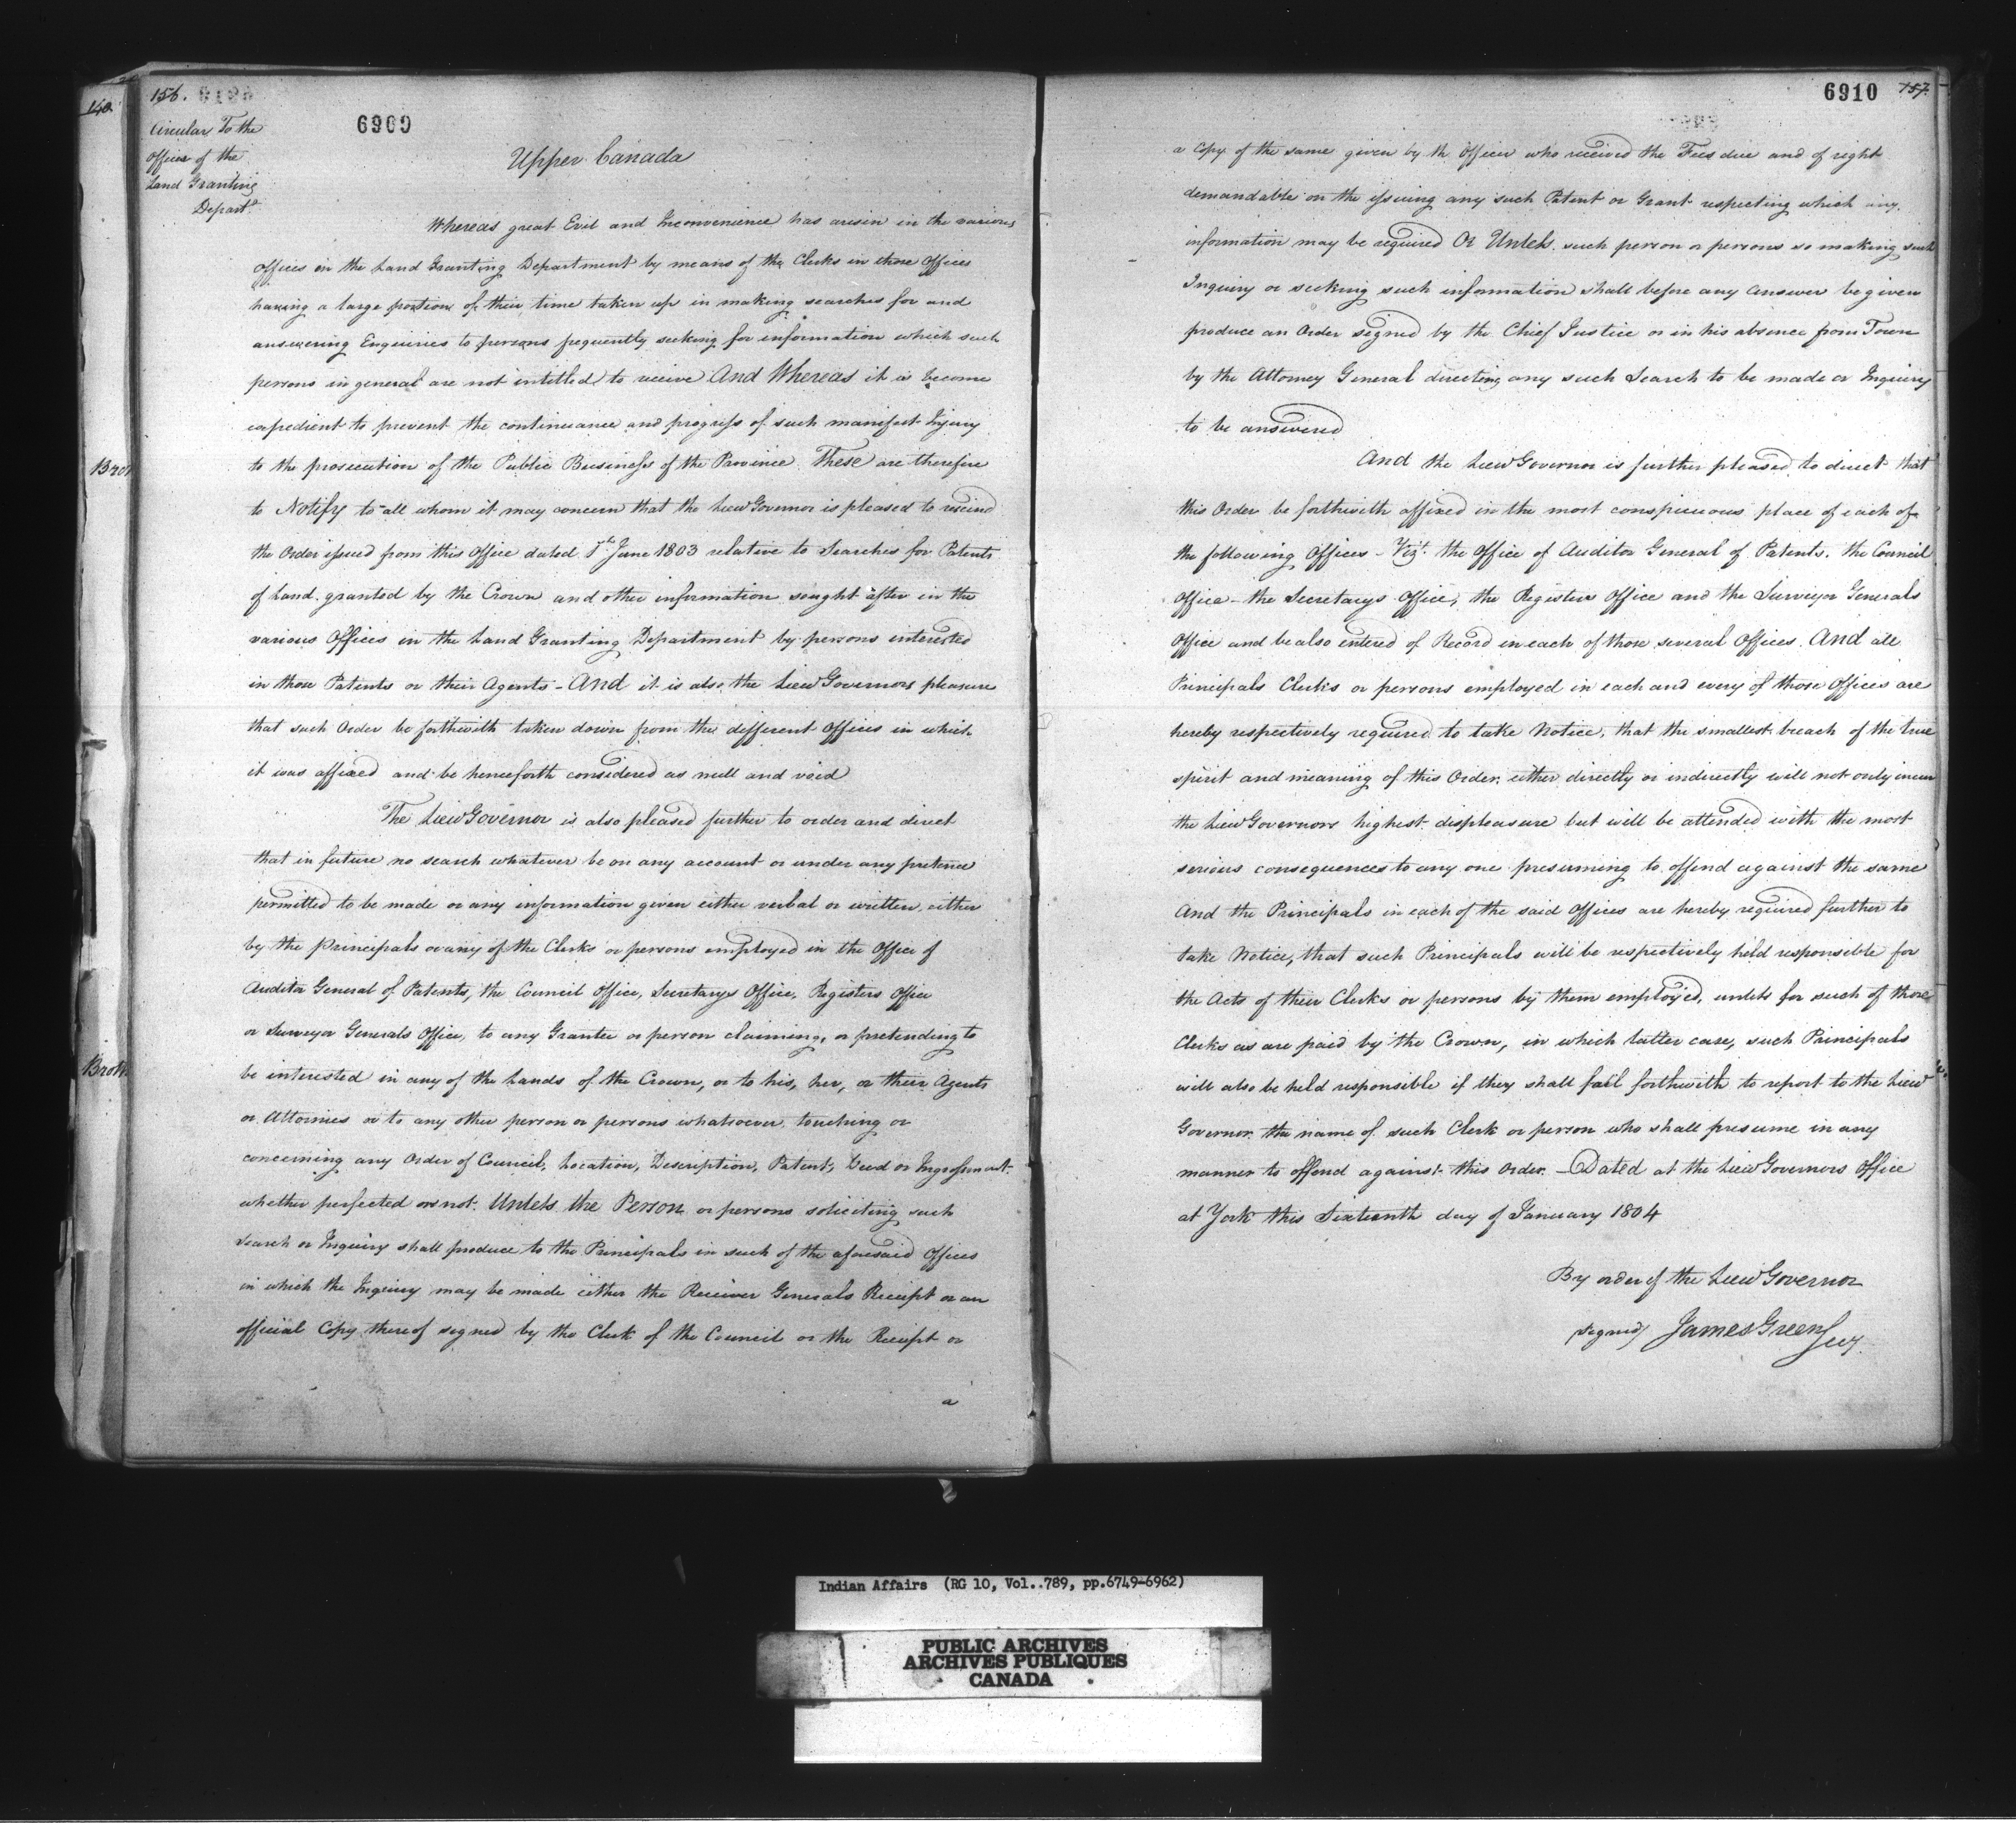 140.
156.
6909
Circular To the
Offices of the
Land Granting
Depart.
Upper Canada
Whereas great Evil and Inconvenience has arisen in the various
Offices in the Land Granting Department by means of the Clerks in those Offices
having a large portion of their time taken up in making searches for and
answering Enquiries to persons frequently seeking for information which such
persons in general are not intitled to receive And Whereas it is become
expedient to prevent the continuance and progress of such manifest Injury
to the prosecution of the Public Business of the Province These are therefore
to Notify to all whom it may concern that the Lieu Governor is pleased to rescind
the Order issued from this Office dated 1st June 1803 relative to Searches for Patents
of Land granted by the Crown and other information sought after in the
various Offices in the Land Granting Department by persons interested
in those Patents or their Agents - And it is also the Lieu Governors pleasure
that such Order be forthwith taken down from the different Offices in which
it was affixed and be henceforth considered as null and void
The Lieu Governor is also pleased further to order and direct
that in future no search whatever be on any account or under any pretence
permitted to be made or any information given either verbal or written, either
by the principals or any of the Clerks or persons employed in the Office of
Auditor General of Patents, the Council Office, Secretarys Office, Registers Office
or Surveyor Generals Office, to any Grantee or person claiming, or pretending to
be interested in any of the Lands of the Crown, or to his, her, or their Agents
or Attornies or to any other person or persons whatsoever touching or
concerning any Order of Council, Location, Description, Patent, Deed or Ingrossment
whether perfected or not. Unless the Person or persons soliciting such
Search or Inquiry shall produce to the Principals in such of the aforesaid Offices
in which the Inquiry may be made either the Receiver Generals Receipt or an
official Copy thereof signed by the Clerk of the Council or the Receipt or
a
6910
157.
a Copy of the same given by the Officer who received the Fees due and of right
demandable on the issuing any such Patent or Grant respecting which any
information may be required Or Unless such person or persons so making such
Inquiry or seeking such information shall before any Answer be given
produce an Order signed by the Chief Justice or in his absence from Town
by the Attorney General directing any such Search to be made or Inquiry
to be answered
And the Lieu Governor is further pleased to direct that
this Order be forthwith affixed in the most conspicuous place of each of
the following Offices - Vizt. the Office of Auditor General of Patents, the Council
Office - the Secretarys Office, the Registers Office and the Surveyor Generals
Office and be also entered of Record in each of those several Offices. And all
Principals Clerks or persons employed in each and every of those Offices are
hereby respectively required to take Notice, that the smallest breach of the true
spirit and meaning of this Order either directly or indirectly will not only incur
the Lieu Governors highest displeasure but will be attended with the most
serious consequences to any one presuming to offend against the same
And the Principals in each of the said Offices are hereby required further to
take Notice, that such Principals will be respectively held responsible for
the Acts of their Clerks or persons by them employed, unless for such of those
Clerks as are paid by the Crown, in which latter case, such Principals
will also be held responsible if they shall fail forthwith to report to the Lieu
Governor the name of such Clerk or person who shall presume in any
manner to offend against this Order. - Dated at the Lieu Governors Office
at York this Sixteenth day of January 1804
By order of the Lieu Governor
signed James Green Secy.
Indian Affairs (RG 10, Vol..789, pp.6749-6962)
PUBLIC ARCHIVES
ARCHIVES PUBLIQUES
CANADA